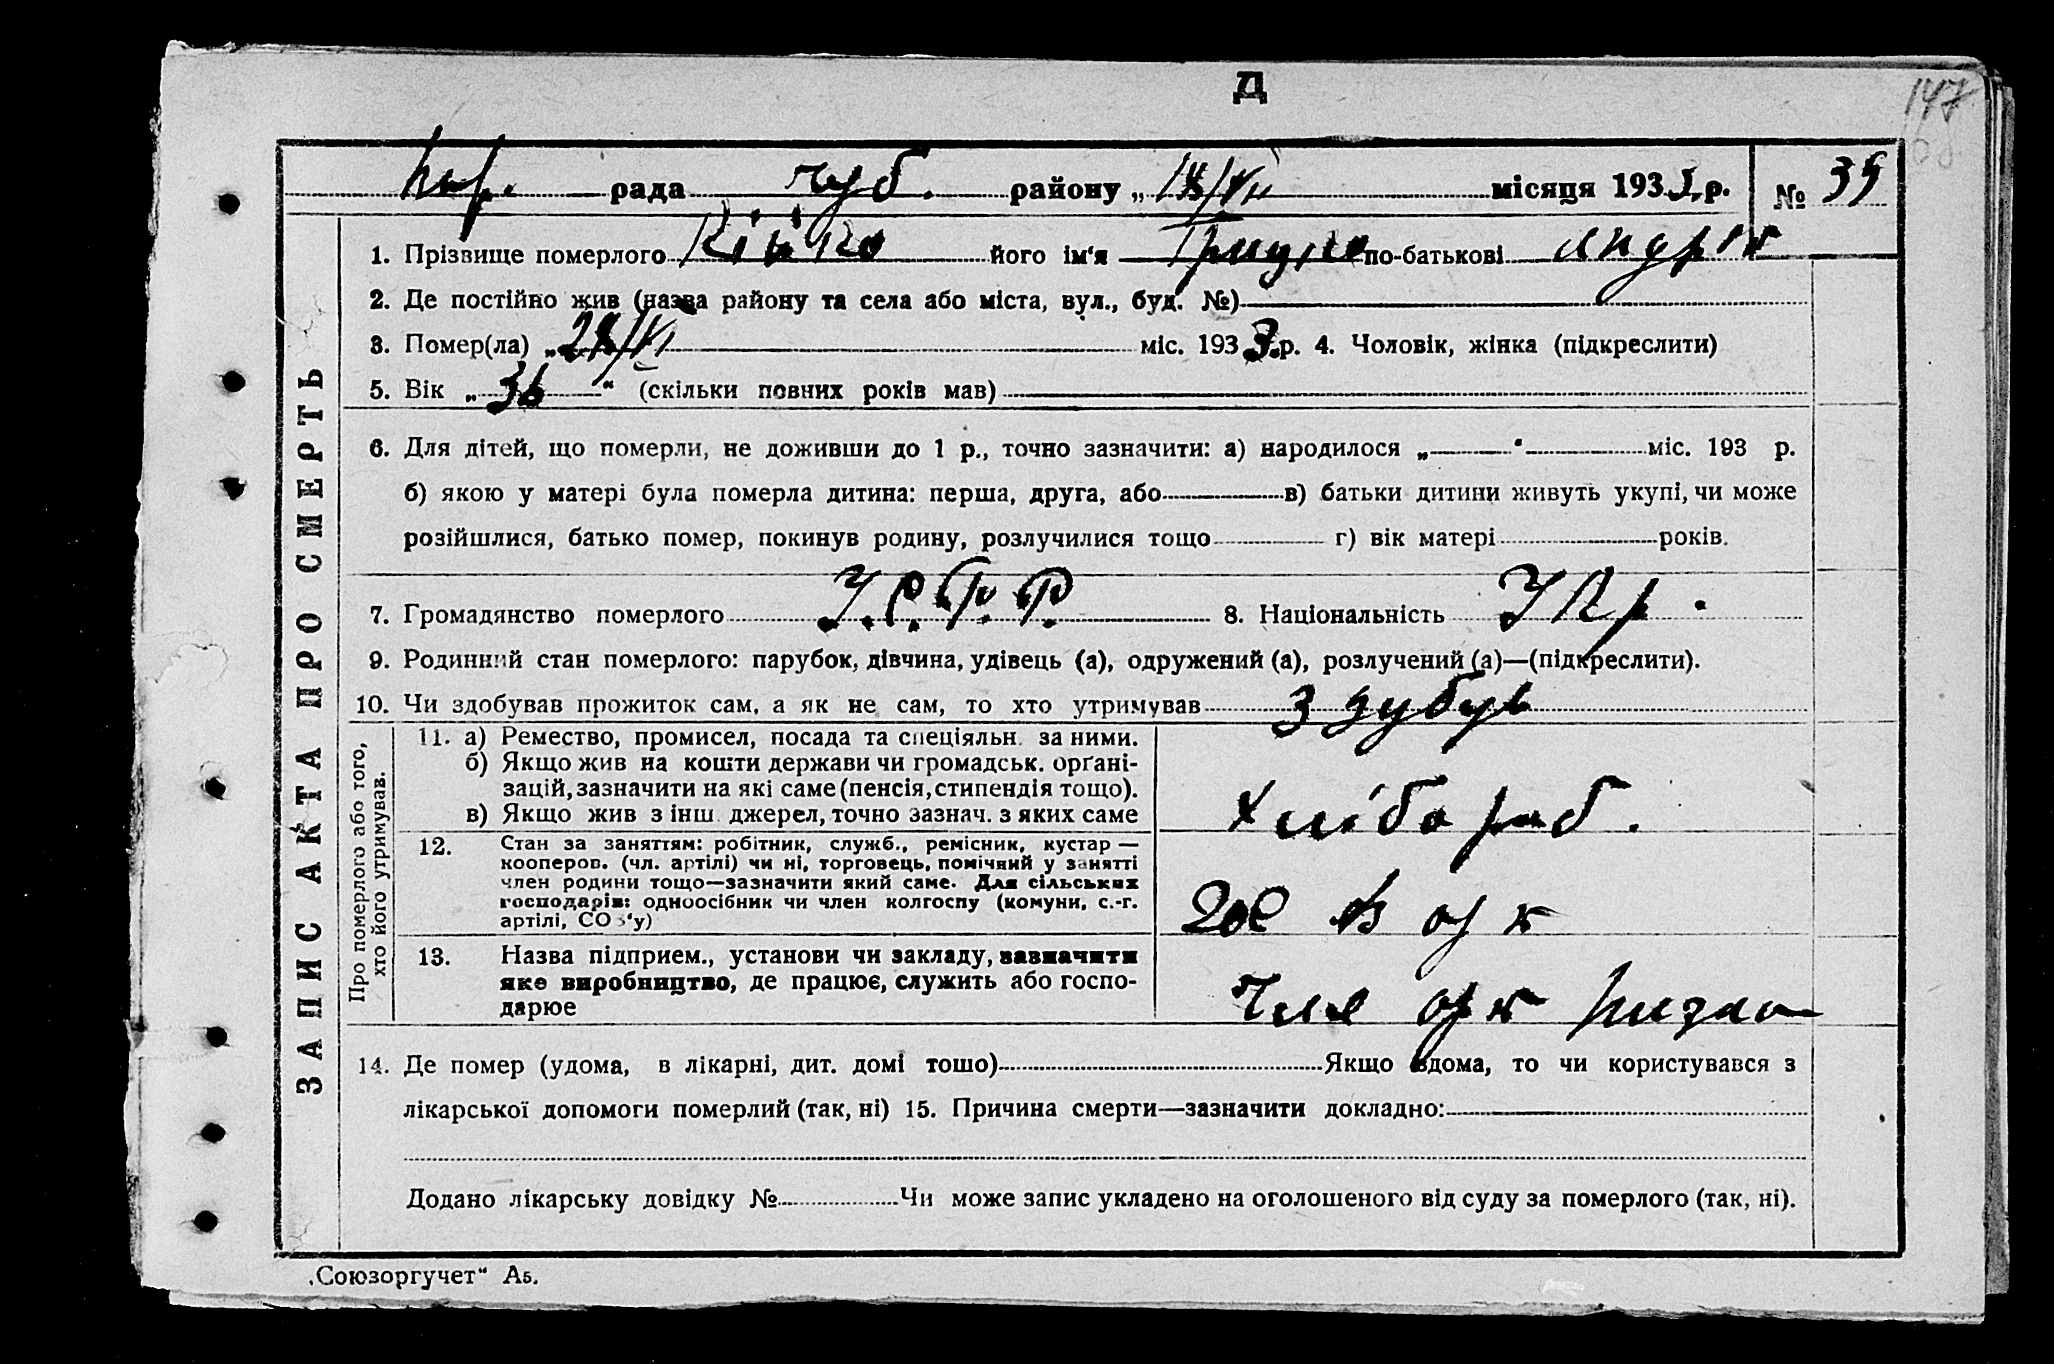 Д
147
рада чуб. району „ місяця 193 р. № 35
ЗАПИС АКТА ПРО СМЕРТЬ
1. Прізвище померлого Кійко його ім'я по-батькові Андрік
2. Де постійно жив (назва району та села або міста, вул., буд. №)
3. Помер(ла) „ міс. 1933 р. 4. Чоловік, жінка (підкреслити)
5. Вік „36“ (скільки повних років мав)
6. Для дітей, що померли, не доживши до 1 р., точно зазначити: а) народилося „ “ міс. 193 р.
б) якою у матері була померла дитина: перша, друга, або в) батьки дитини живуть укупі, чи може
розійшлися, батько помер, покинув родину, розлучилися тощо г) вік матері років.
7. Громадянство померлого У.С.Р.Р. 8. Національність Укр.
9. Родинний стан померлого: парубок, дівчина, удівець (а), одружений (а), розлучений (а)—(підкреслити).
10. Чи здобував прожиток сам, а як не сам, то хто утримував здубув
Про померлого або того,
хто його утримував.
11. а) Ремество, промисел, посада та спеціяльн. за ними.
б) Якщо жив на кошти держави чи громадськ. орґані-
зацій, зазначити на які саме (пенсія, стипендія тощо).
в) Якщо жив з інш. джерел, точно зазнач. з яких саме
Хлібороб.
12. Стан за заняттям: робітник, служб., ремісник, кустар —
кооперов. (чл. артілі) чи ні, торговець, помічний у занятті
член родини тощо—зазначити який саме. Для сільських
господарів: одноосібник чи член колгоспу (комуни, с.-г.
артілі, СОЗ'у)
13. Назва підприєм., установи чи закладу, зазначити
яке виробництво, де працює, служить або госпо-
дарює
14. Де помер (удома, в лікарні, дит. домі тошо) Якщо вдома, то чи користувався з
лікарської допомоги померлий (так, ні) 15. Причина смерти—зазначити докладно:
Додано лікарську довідку № Чи може запис укладено на оголошеного від суду за померлого (так, ні).
„Союзоргучет“ А5.